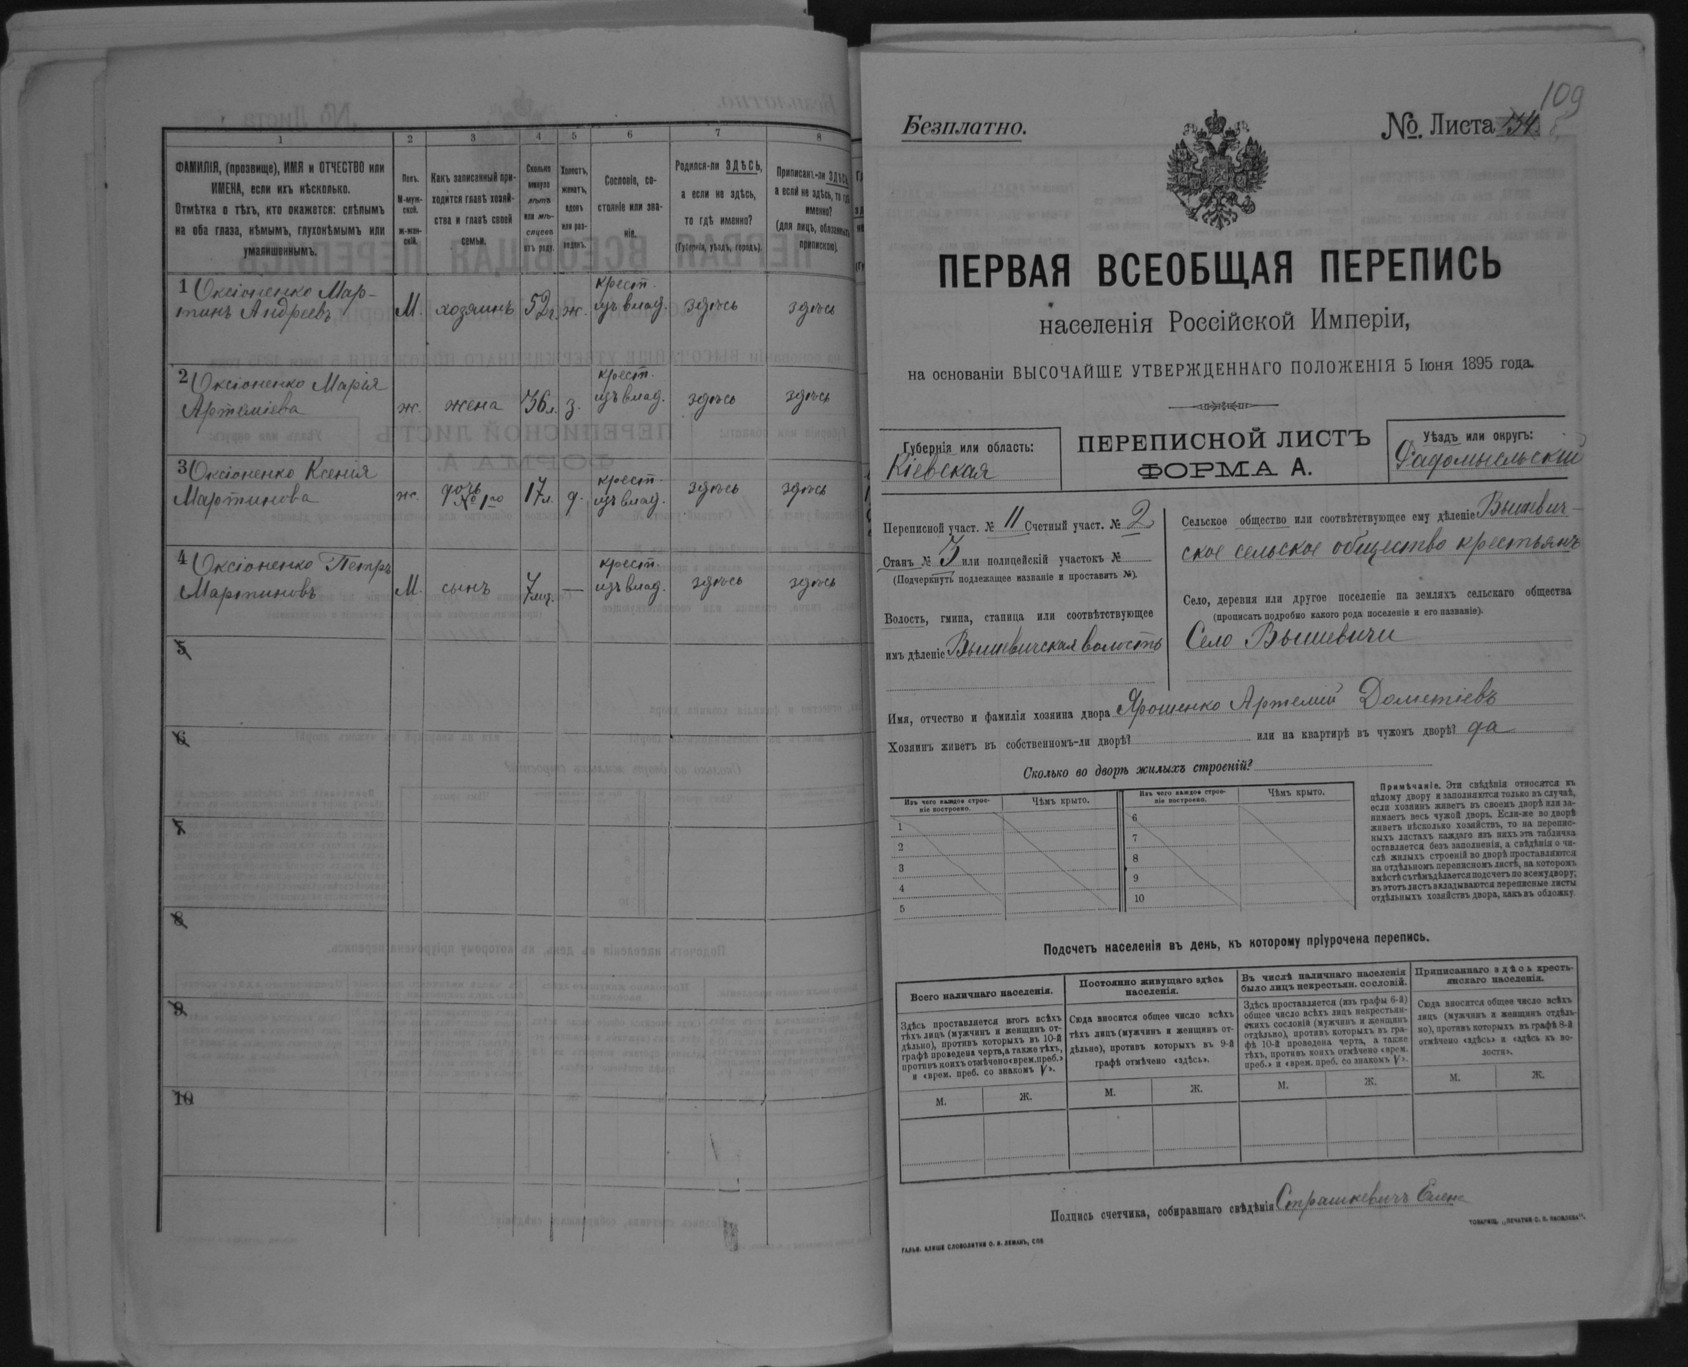 1
2
3
4
5
6
7
8
ФАМИЛІЯ, (прозвище), ИМЯ и ОТЧЕСТВО или
ИМЕНА, если ихъ нѣсколько.
Отмѣтка о тѣхъ, кто окажется: слѣпымъ
на оба глаза, нѣмымъ, глухонѣмымъ или
умалишеннымъ.
Полъ.
М-муж-
ской.
ж-жен-
скій.
Какъ записанный при-
ходится главѣ хозяй-
ства и главѣ своей
семьи.
Сколько
минуло
лѣтъ
или мѣ-
сяцевъ
отъ роду.
Холостъ,
женатъ,
вдовъ
или раз-
веденъ.
Сословіе, со-
стояніе или зва-
ніе.
Родился-ли ЗДѢСЬ,
а если не здѣсь,
то гдѣ именно?
(Губернія, уѣздъ, городъ).
Приписанъ-ли ЗДѢСЬ,
а если не здѣсь, то гдѣ
именно?
(для лицъ, обязанныхъ
припискою).
1 Оксіоненко Мар-
тинъ Андреевъ
М. хозяинъ 52г. ж.
крест.
изъ влад.
здѣсь здѣсь
2 Оксіоненко Марія
Артеміева
ж. жена 36л. з.
крест.
изъ влад.
здѣсь здѣсь
3 Оксіоненко Ксенія
Мартинова
ж. дочь
№ 1го
17л. д.
крест.
изъ влад.
здѣсь здѣсь
4 Оксіоненко Петръ
Мартиновъ
М. сынъ 7 —
крест.
изъ влад.
здѣсь здѣсь
5
6
7
8
9
10
109
Безплатно.
№. Листа 134
ПЕРВАЯ ВСЕОБЩАЯ ПЕРЕПИСЬ
населенія Россійской Имперіи,
на основаніи ВЫСОЧАЙШЕ УТВЕРЖДЕННАГО ПОЛОЖЕНІЯ 5 Іюня 1895 года.
Губернія или область:
Кіевская
ПЕРЕПИСНОЙ ЛИСТЪ
ФОРМА А.
Уѣздъ или округъ:
Радомысльскій
Переписной участ. № 11 Счетный участ. № 2
Станъ № 3 или полицейскій участокъ №
(Подчеркнуть подлежащее названіе и проставить №).
Волость, гмина, станица или соотвѣтствующее
имъ дѣленіе Вышевичская волость
Сельское общество или соотвѣтствующее ему дѣленіе Вышевич-
ское сельское общество крестьянъ
Село, деревня или другое поселеніе на земляхъ сельскаго общества
(прописать подробно какого рода поселеніе и его названіе).
Село Вышевичи
Имя, отчество и фамилія хозяина двора Ярошенко Артемій Дометіевъ
Хозяинъ живетъ въ собственномъ-ли дворѣ? или на квартирѣ въ чужомъ дворѣ? да
Сколько во дворѣ жилыхъ строеній?
Изъ чего каждое строе-
ніе построено.
Чѣмъ крыто.
Изъ чего каждое строе-
ніе построено.
Чѣмъ крыто.
1
2
3
4
5
6
7
8
9
10
Примѣчаніе. Эти свѣдѣнія относятся къ
цѣлому двору и заполняются только въ случаѣ,
если хозяинъ живетъ въ своемъ дворѣ или за-
нимаетъ весь чужой дворъ. Если-же во дворѣ
живетъ нѣсколько хозяйствъ, то на перепис-
ныхъ листахъ каждаго изъ нихъ эта табличка
оставляется безъ заполненія, а свѣдѣнія о чи-
слѣ жилыхъ строеній во дворѣ проставляются
на отдѣльномъ переписномъ листѣ, на которомъ
вмѣстѣ съ тѣмъ дѣлается подсчетъ по всему двору;
въ этотъ листъ вкладываются переписные листы
отдѣльныхъ хозяйствъ двора, какъ въ обложку.
Подсчетъ населенія въ день, къ которому пріурочена перепись.
Всего наличнаго населенія.
Здѣсь проставляется итогъ всѣхъ
тѣхъ лицъ (мужчинъ и женщинъ от-
дѣльно), противъ которыхъ въ 10-й
графѣ проведена черта, а также тѣхъ,
противъ коихъ отмѣчено «врем. преб.»
и «врем. преб. со знакомъ V».
М. Ж.
Постоянно живущаго здѣсь
населенія.
Сюда вносится общее число всѣхъ
тѣхъ лицъ (мужчинъ и женщинъ от-
дѣльно), противъ которыхъ въ 9-й
графѣ отмѣчено «здѣсь».
М. Ж.
Въ числѣ наличнаго населенія
было лицъ некрестьян. сословій.
Здѣсь проставляется (изъ графы 6-й)
общее число всѣхъ лицъ некрестьян-
скихъ сословій (мужчинъ и женщинъ
отдѣльно), противъ которыхъ въ гра-
фѣ 10-й проведена черта, а также
тѣхъ, противъ коихъ отмѣчено «врем.
преб.» и «врем. преб. со знакомъ V».
М. Ж.
Приписаннаго здѣсь кресть-
янскаго населенія.
Сюда вносится общее число всѣхъ
лицъ (мужчинъ и женщинъ отдѣль-
но), противъ которыхъ въ графѣ 8-й
отмѣчено «здѣсь» и «здѣсь въ во-
лости».
М. Ж.
Подпись счетчика, собиравшаго свѣдѣнія Страшкевичъ
ГАЛЬВ. КЛИШЕ СЛОВОЛИТНИ О. И. ЛЕМАНЪ, СПБ
ТОВАРИЩ. „ПЕЧАТНЯ С. П. ЯКОВЛЕВА“.